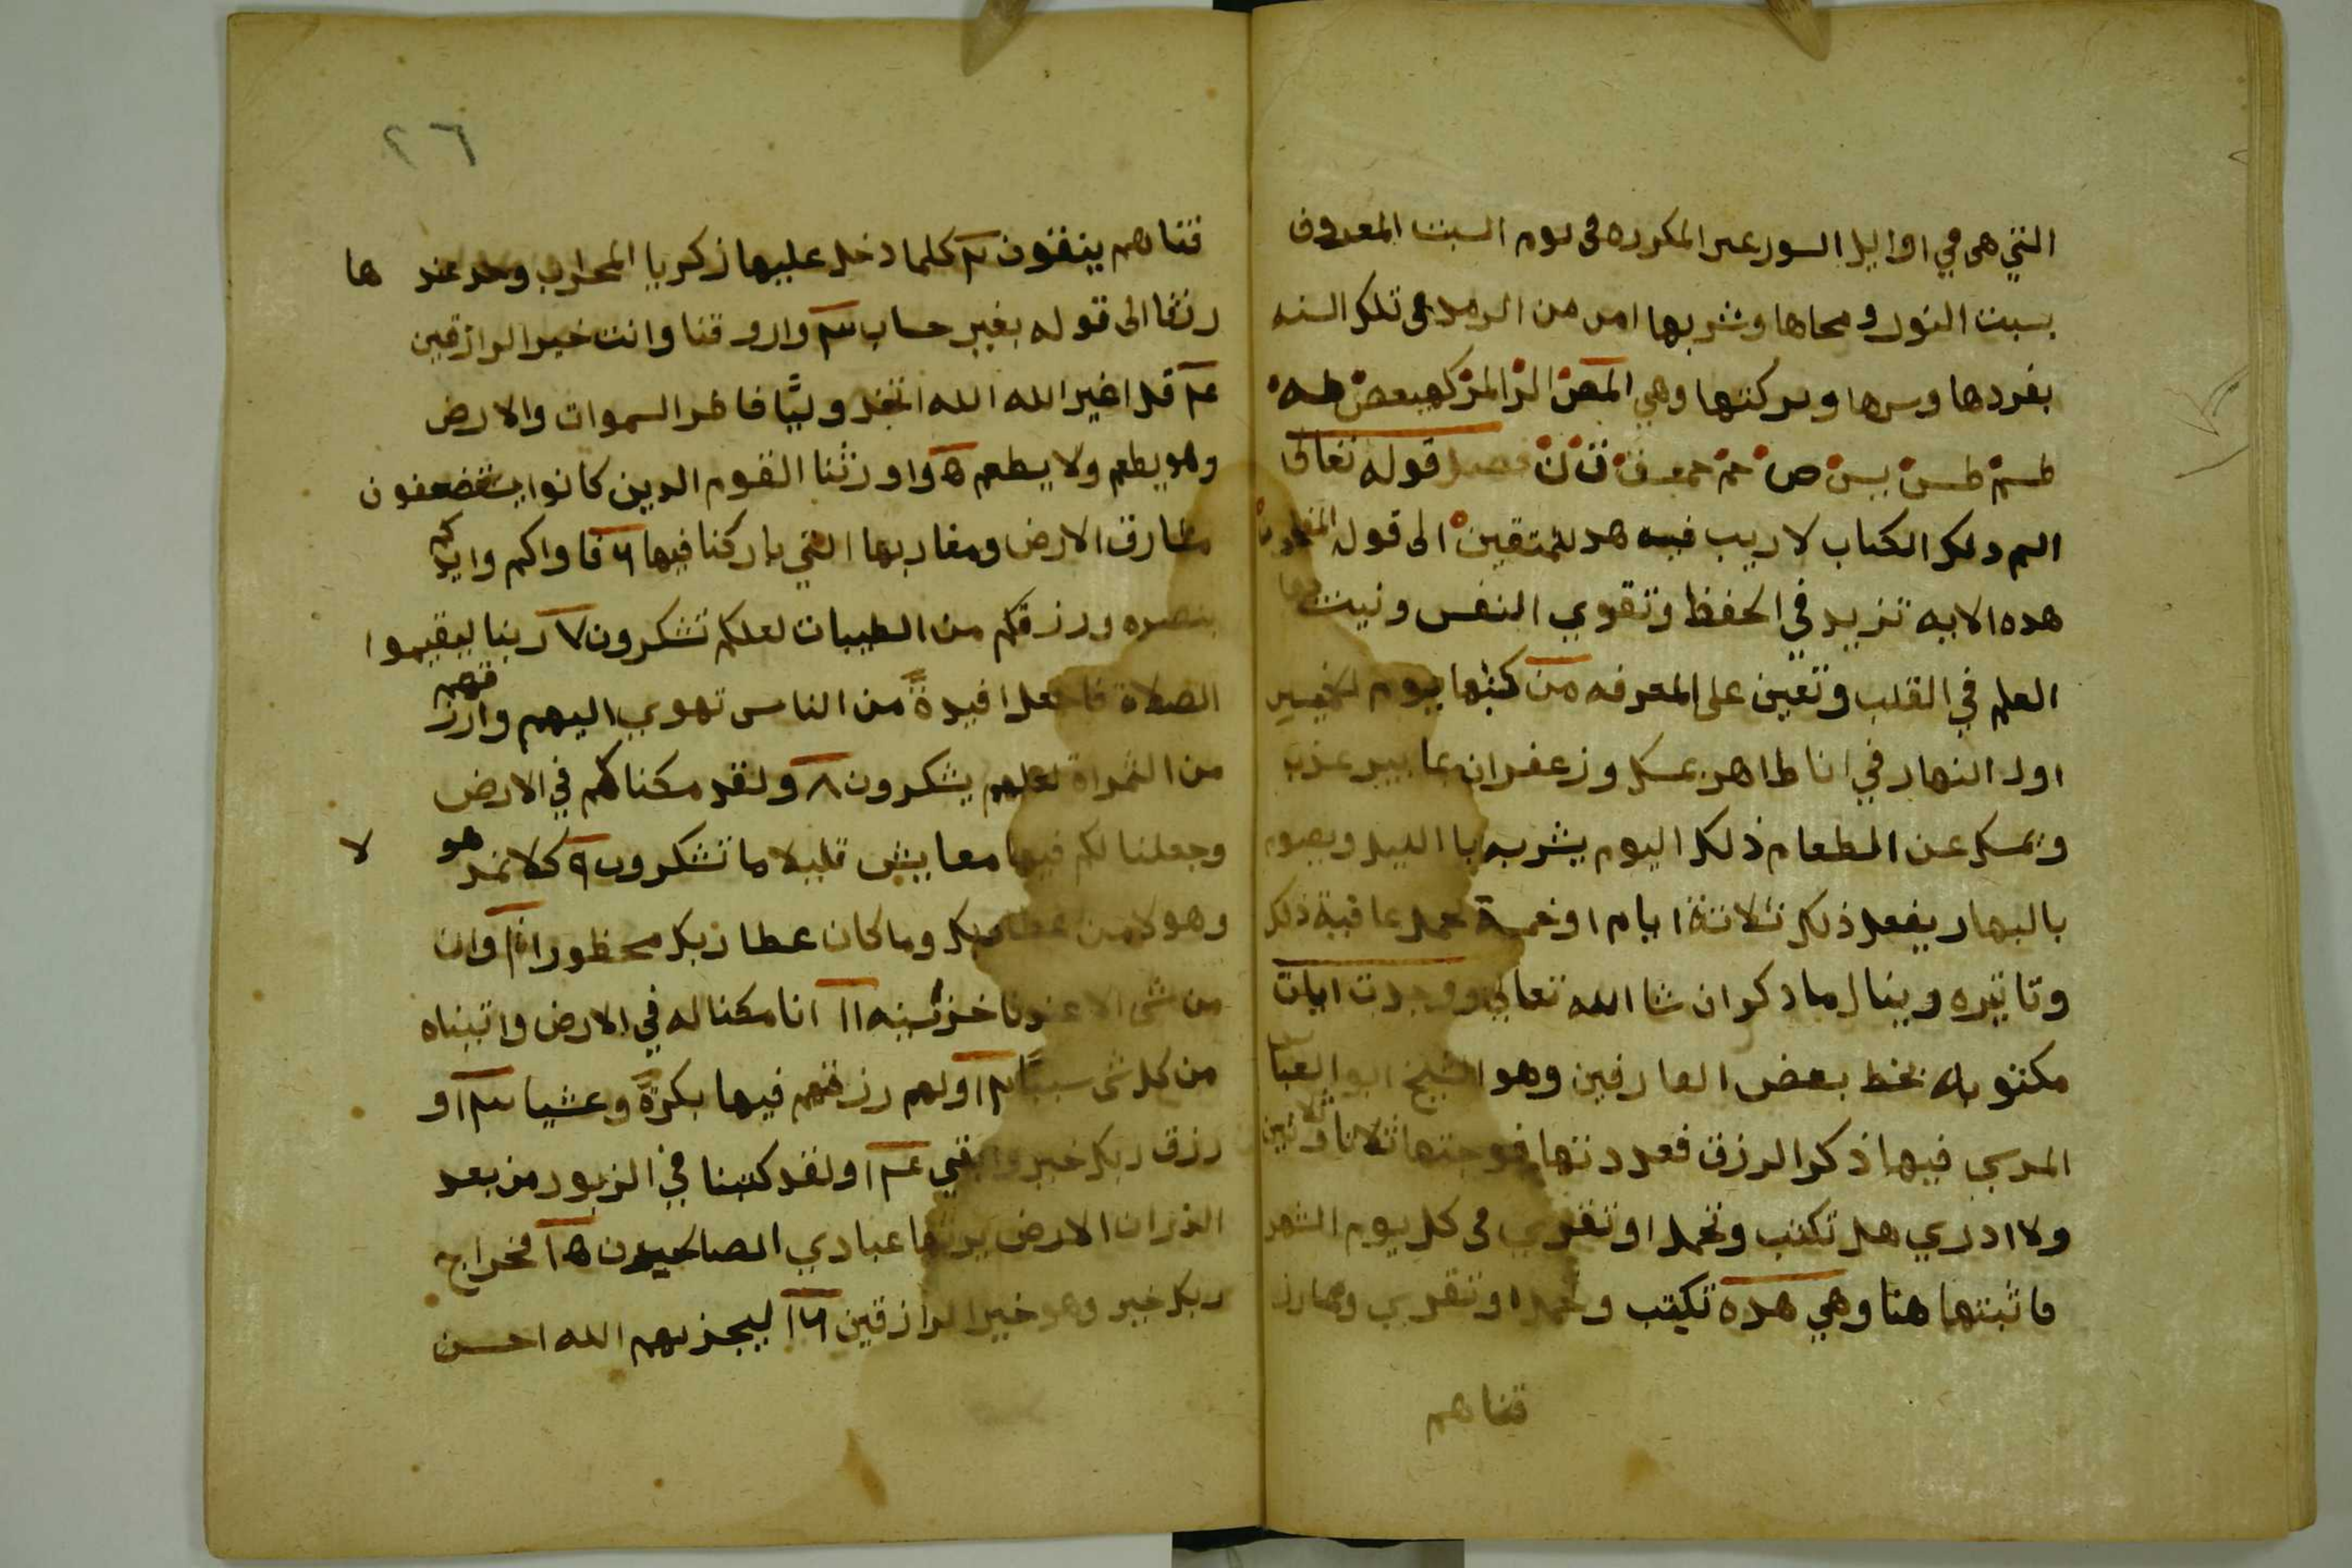 التي هي في اوايل السور غير المكرره في يوم السبت المعروف
بسبت النور ومحاها وشربها امن من الرمد في تلك السنه
بفردها وسرها وبركتها وهي المص الر المر كهيعص طه
طسم طس يس ص حم حمعسق ق ن فصل قوله تعالى
الم دلك الكتاب لا ريب فيه هد للمتقين الى قوله المفلحون
هده الايه تزيد في الحفظ وتقوي النفس وتثبت
العلم في القلب وتعين على المعرفه من كتبها يوم الخميس
اول النهار في انا طاهر بمسك وزعفران بما بير عذب
ويمسك عن الطعام ذلك اليوم يشربه با الليل ويصوم
بالنهار يفعل ذلك ثلاثة ايام او خمسة حمد عاقبة ذلك
وتاثيره وينال ما دكر ان شا الله تعالى ووجدت ايات
مكتوبه بخط بعض العارفين وهو الشيخ ابو العباس
المرسي فيها ذكر الرزق فعددتها فوجتها ثلاثا وثلاثين
ولا ادري هل تكتب وتحمل او تقري في كل يوم الشهر
فاثبتها هنا وهي هده تكتب وتحمل او تقري ومما رز
قناهم
٢٦
قناهم ينفقون ٢ كلما دخل عليها زكريا المحراب وجد عند ها
رزقا الى قوله بغير حساب ٣ وارزقنا وانت خير الرازقين
٤ قل اغير الله الله اتخذ وليًّا فاطر السموات والارض
وهو يطعم ولا يطعم ٥ واورثنا القوم الدين كانوا يستضعفون
مشارق الارض ومغاربها التي باركنا فيها ٦ فاواكم وايدكم
بنصره ورزقكم من الطيبات لعلكم تشكرون ٧ ربنا ليقيموا
الصلاة فاجعل افيدةً من الناس تهوي اليهم وارزقهم
من الثمراة لعلهم يشكرون ٨ ولقد مكناكم في الارض
وجعلنا لكم فيها معايش قليلا ما تشكرون ٩ كلا نمد هو لا
وهولا من عطا ربك وما كان عطا ربك محظورا ١٠ وان
من شي الا عندنا خزئينه ١١ انا مكنا له في الارض واتيناه
من كل شي سببًا ١٢ ولهم رزقهم فيها بكرةً وعشيا ١٣ و
رزق ربك خير وابقي ١٤ ولقد كتبنا في الزبور من بعد
الذكر ان الارض يرثها عبادي الصالحون ١٥ فخراج
ربك خير وهو خير الرازقين ١٦ ليجزيهم الله احسن